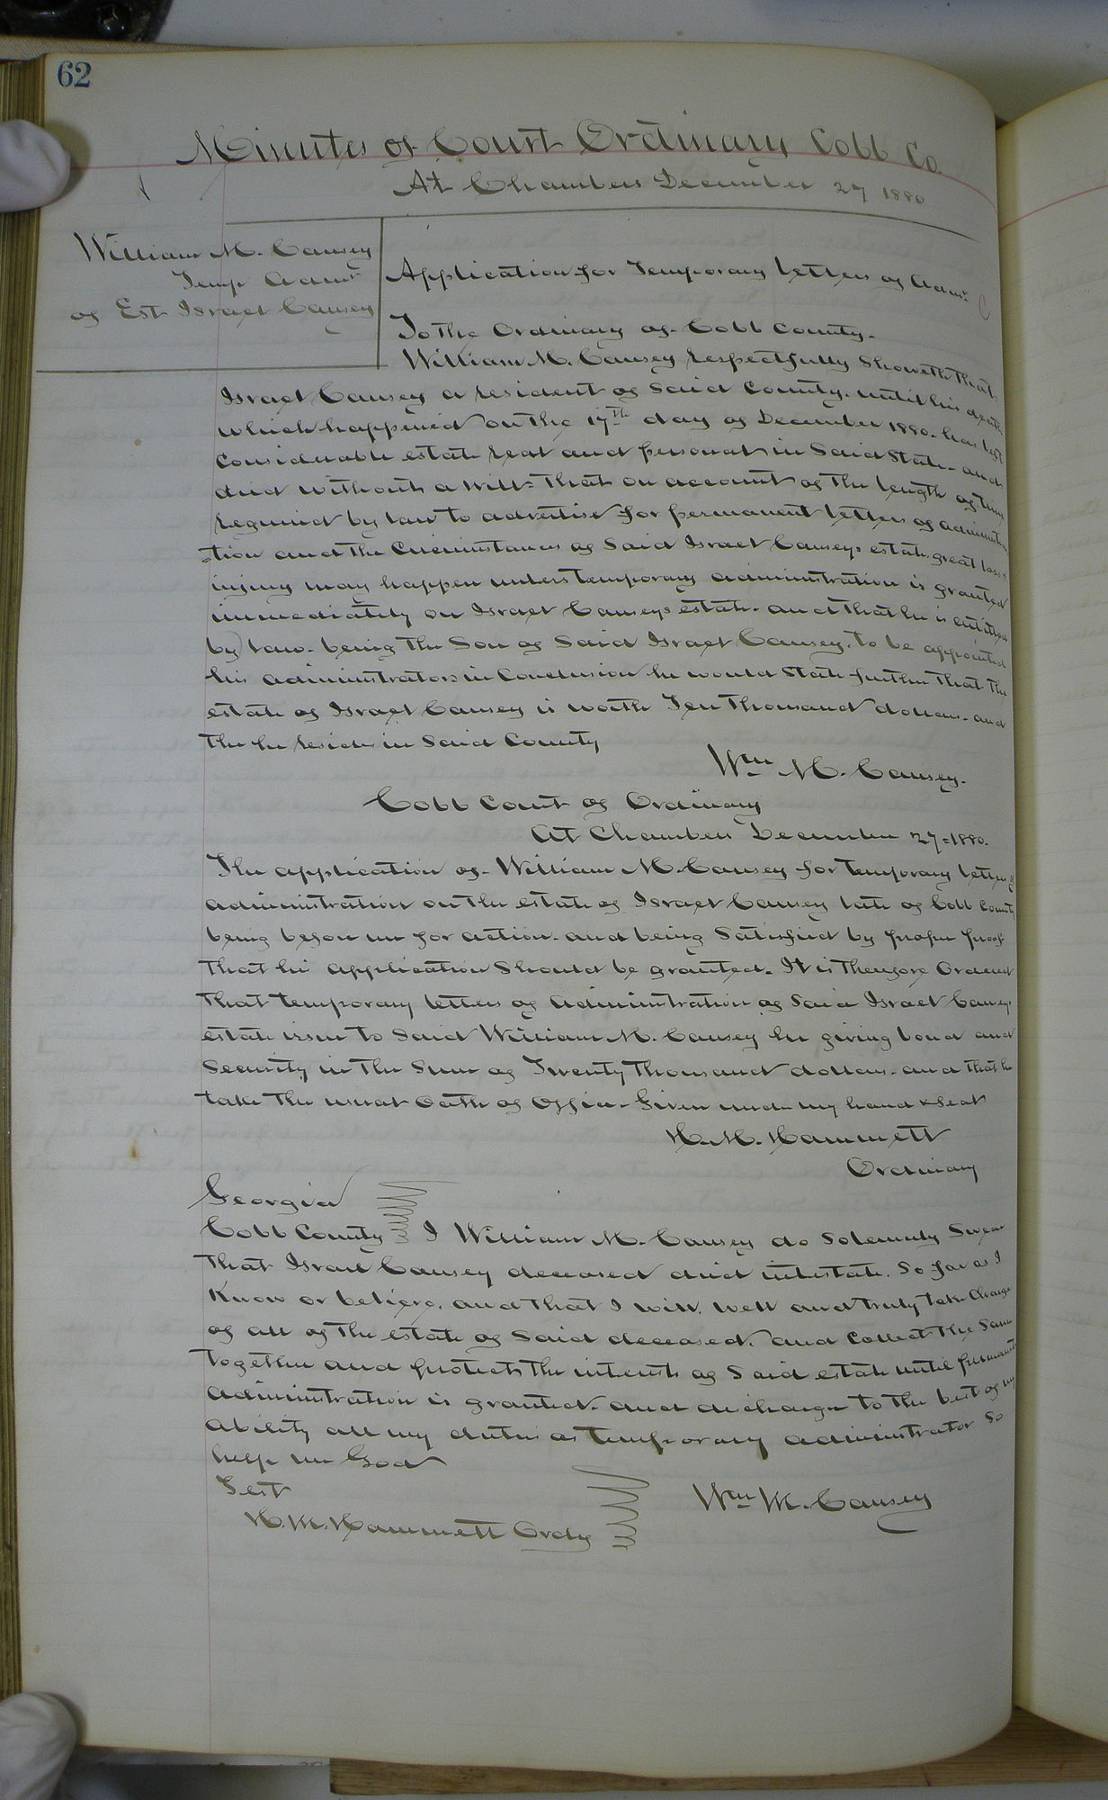 62
Minutes of Court Ordinary Cobb Co.
At Chambers December 27 1880
William M. Causey
Temp Admr
of Est Israel Causey
Application for Temporary Letters of Admr.
To the Ordinary of Cobb County.
William M. Causey respectfully Showeth that
Israel Causey a resident of Said County. until his death
which happened on the 17th day of December 1880. has left
Considerable estate real and personal in Said State. and
died without a will. That on account of the length of time
required by law to advertise for permanent letters of administra
tion and the Circumstances of Said Israel Causeys estate. great loss &
injury may happen unless temporary administration is granted
immediately on Israel Causeys estate. and that he is entitled
by law. being the Son of Said Israel Causey. to be appointed
his administrator in Conclusion he would State further that the
estate of Israel Causey is worth Ten Thousand dollars. and
the he resides in Said County
Wm M. Causey.
Cobb Court of Ordinary
At Chambers December 27=1880.
The application of William M. Causey for temporary letters of
administration on the estate of Israel Causey late of Cobb County
being before me for action. and being Satisfied by proper proof
that his application Should be granted. It is Therefore Ordered
that temporary letters of Administration of Said Israel Causeys
estate issue to Said William M. Causey he giving bond and
Security in the Sum of Twenty thousand dollars. and that he
take the usual Oath of Office. Given under my hand & Seal
H. M. Hammett
Ordinary
Georgia
Cobb County I William M. Causey do Solemnly Swear
that Israel Causey deceased died intestate. So far as I
Know or believe. and that I will, well and truly take Charge
of all of the estate of Said deceased. and Collect the Same
together and protect the interests of Said estate until permanent
administration is granted. and discharge to the best of my
ability all my duties as temporary administrator So
help me God
Test
H. M. Hammett Ordy
Wm M. Causey